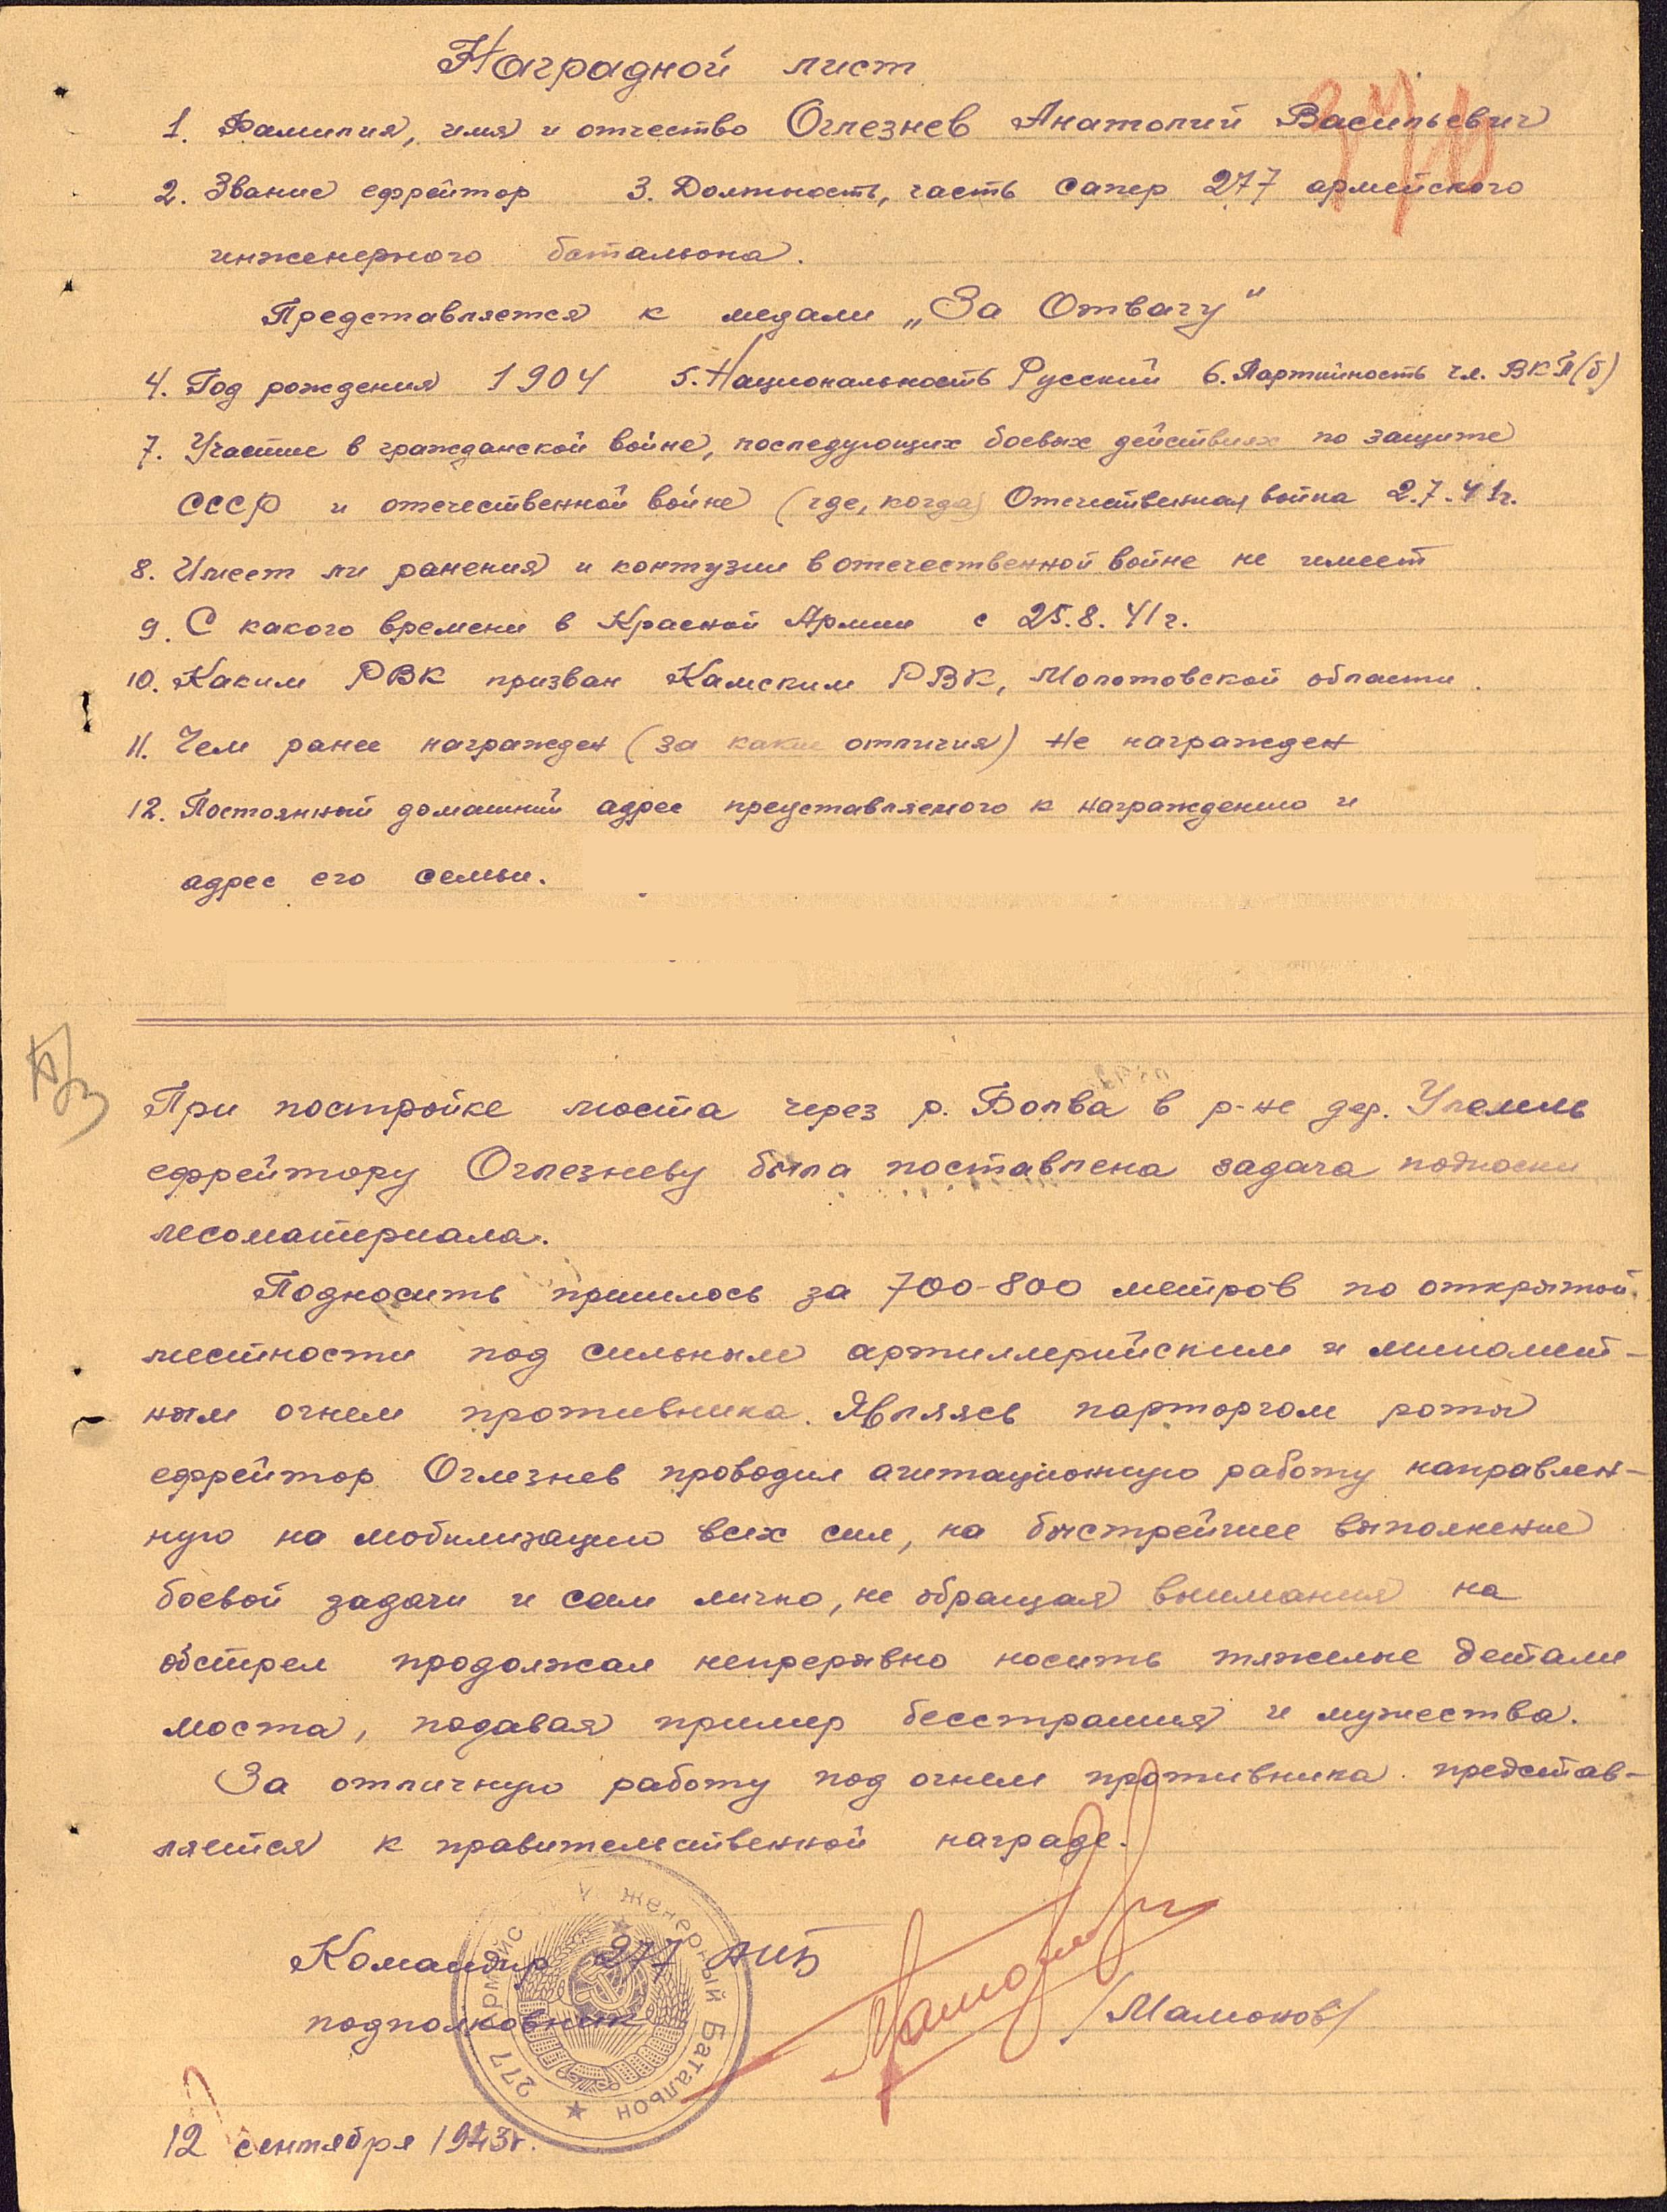 Наградной лист
1. Фамилия, имя и отчество Оглезнев Анатолий Васильевич
2. Звание ефрейтор 3. Должность, часть сапер 277 армейского
инженерного батальона.
Представляется к медали „За Отвагу“
4. Год рождения 1904 5. Национальность Русский 6. Партийность чл. ВКП(б)
7. Участие в гражданской войне, последующих боевых действиях по защите
СССР и отечественной войне (где, когда) Отечественная война 2.7.41г.
8. Имеет ли ранения и контузии в отечественной войне не имеет
9. С какого времени в Красной Армии с 25.8.41г.
10. Каким РВК призван Камским РВК, Молотовской области.
11. Чем ранее награжден (за какие отличия) Не награжден
12. Постоянный домашний адрес представляемого к награждению и
адрес его семьи.
При постройке моста через р. Болва в р-не дер. Улемль
ефрейтору Оглезневу была поставлена задача подноски
лесоматериала.
Подносить пришлось за 700-800 метров по открытой
местности под сильным артиллерийским и миномет-
ным огнем противника. Являясь парторгом роты
ефрейтор Оглезнев проводил агитационную работу направлен-
ную на мобилизацию всех сил, на быстрейшее выполнение
боевой задачи и сам лично, не обращая внимания на
обстрел продолжал непрерывно носить тяжелые детали
моста, подавая пример бесстрашия и мужества.
За отличную работу под огнем противника представ-
ляется к правительственной награде.
Командир 277 АИБ
подполковник /Мамонов/
277 Батальон
12 сентября 1943г.